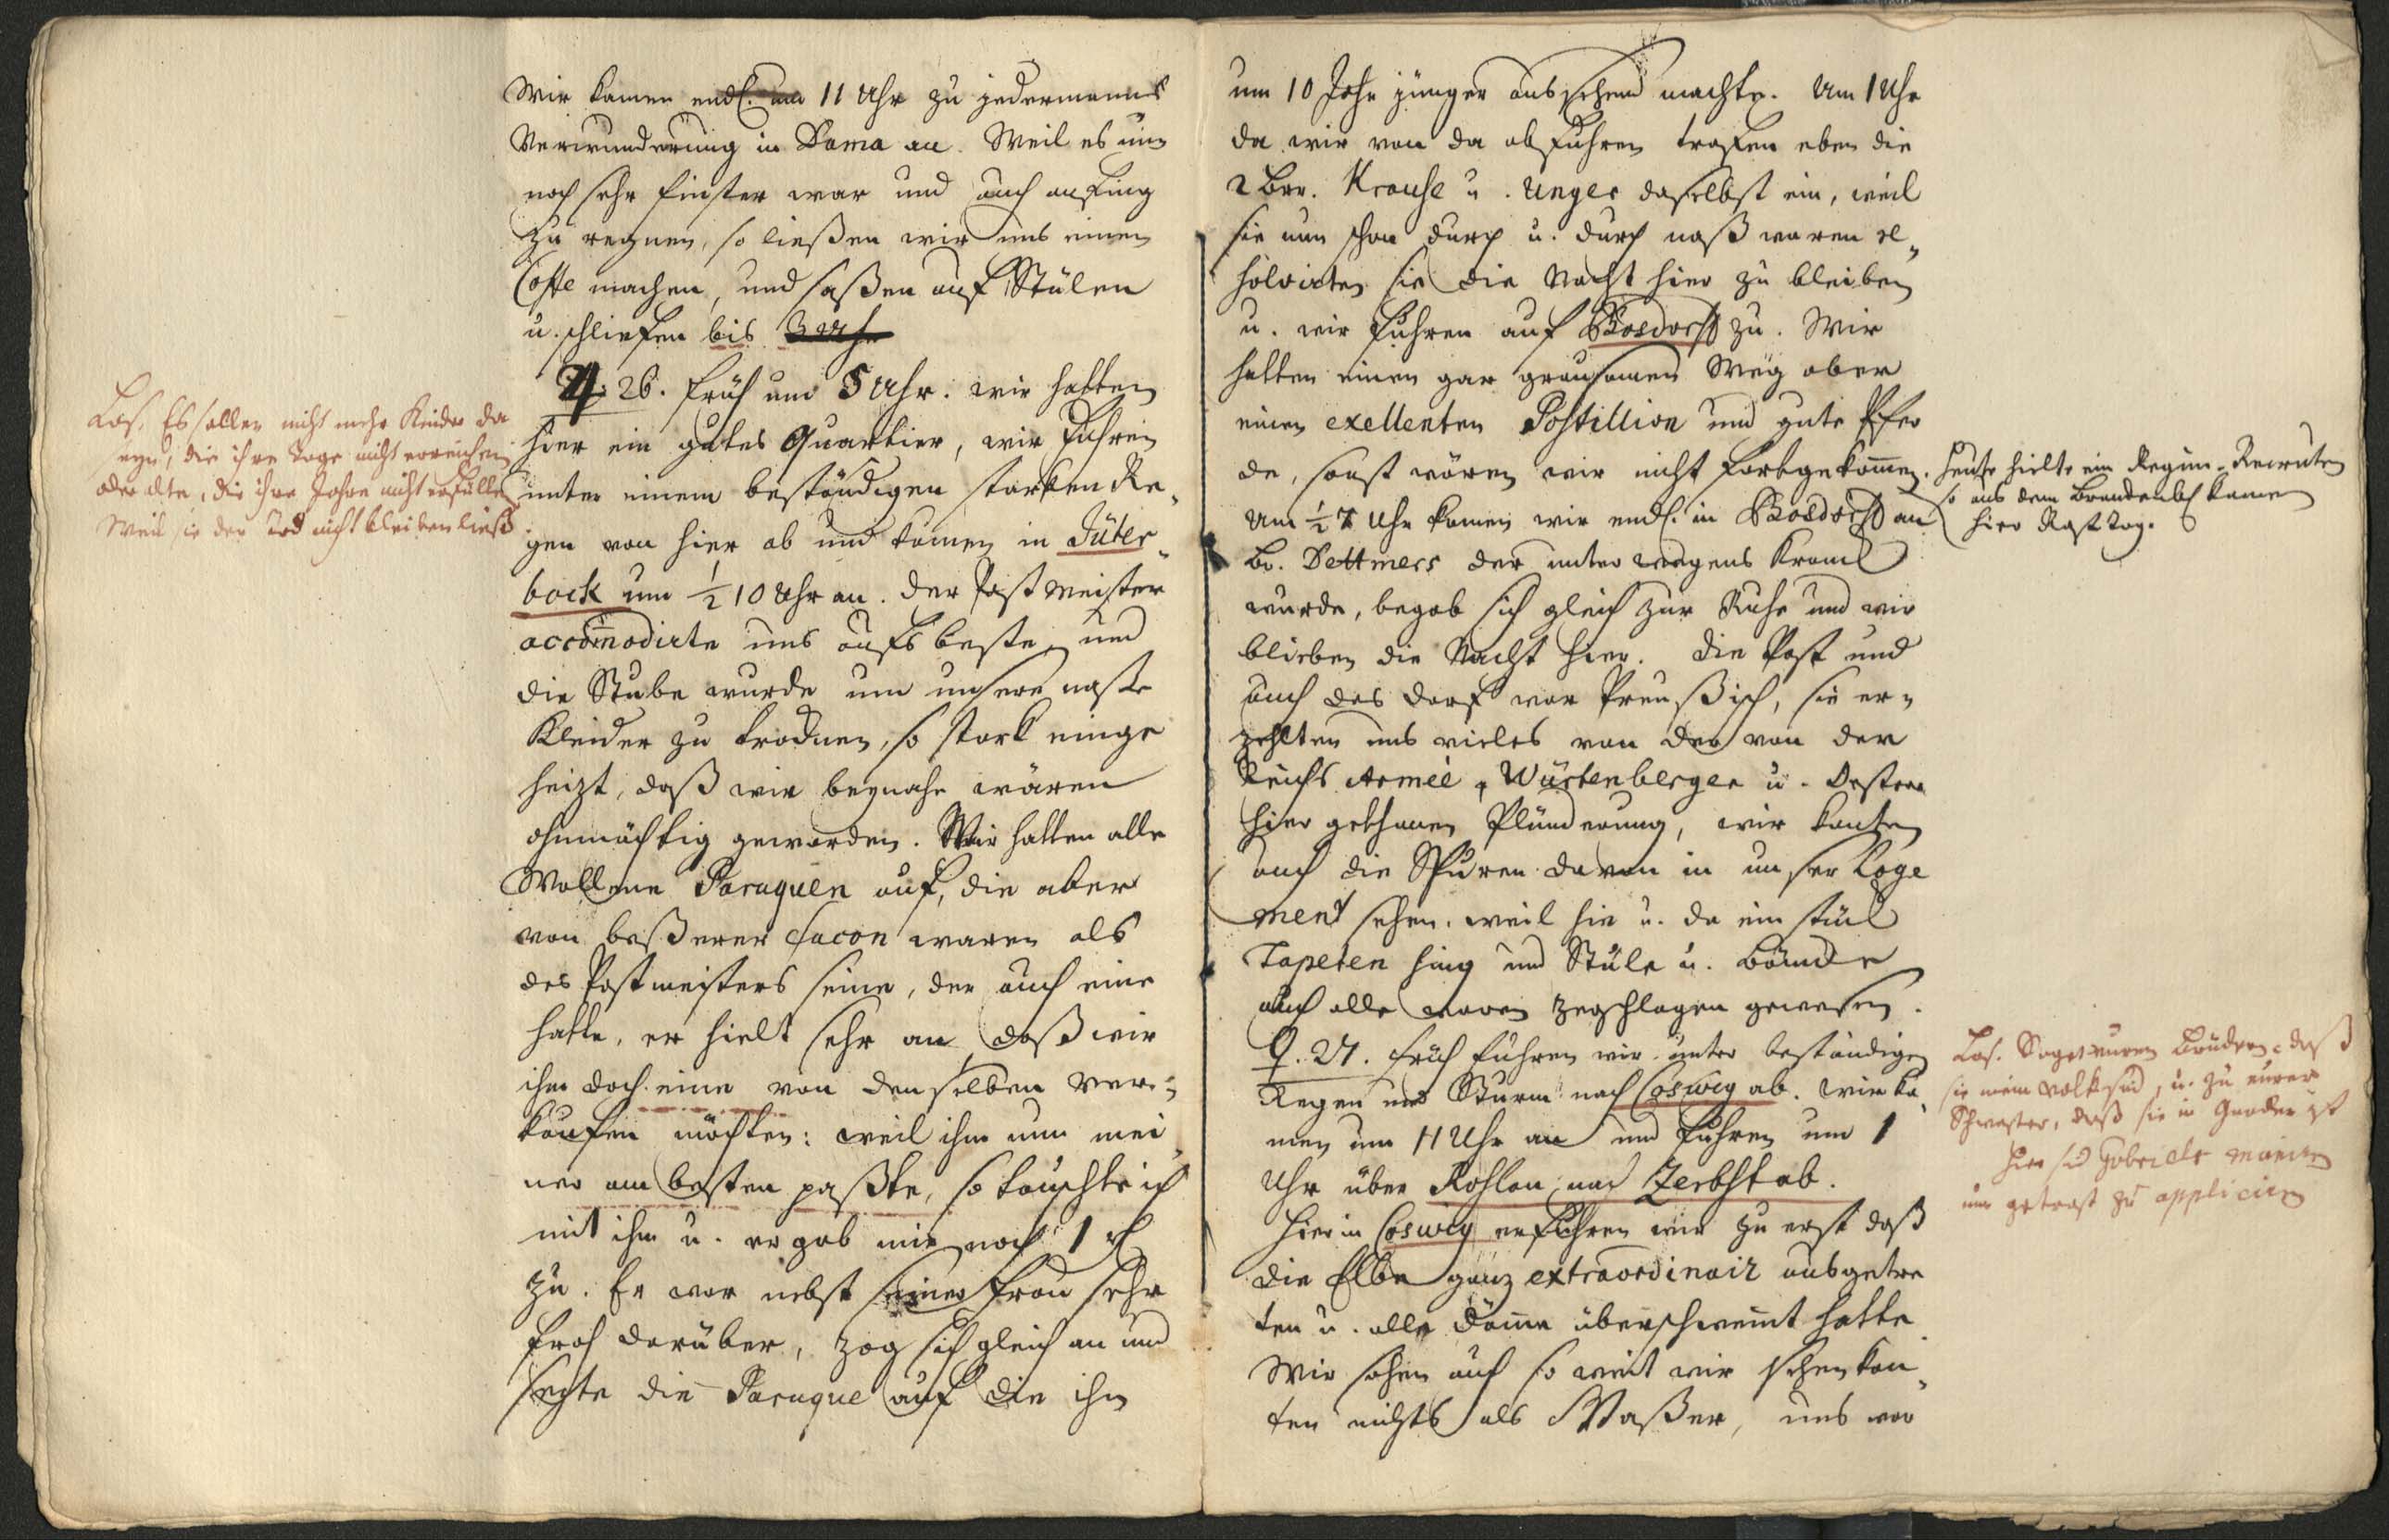 Wir kamen endl. um 11 Uhr zu jedermanns
Verwunderung in Dama an. Weil es nun
noch sehr finster war und auch anfing
zu regnen, so ließen wir uns einen
Coffe machen, und saßen auf Stülen
u. schliefen bis 3 Uhr
♃ 26. früh um 5 Uhr. wir hatten
hier ein gutes Quartier, wir fuhren
unter einem beständigen starken Re-
gen von hier ab und kamen in Jüter-
bock um ½ 10 Uhr an. der Postmeister
accom̄odirte uns aufs beste, und
die Stube wurde um unsere naße
Kleider zu trocknen, so stark einge
heizt, daß wir beynahe wären
ohnmächtig geworden. Wir hatten alle
Wollene Paruquen auf, die aber
von beßerer Facon waren als
des Postmeisters seine, der auch eine
hatte, er hielt sehr an, daß wir
ihm doch eine von denselben ver-
kaufen möchten: weil ihm nun mei-
ner am besten paßte, so tauschte ich
mit ihm u. er gab mir noch 1 rh
zu. Er war nebst seiner Frau sehr
froh darüber, zog sich gleich an und
sezte die Paruque auf die ihn
Los. Es sollen nicht mehr Kinder da
seyn, die ihre Tage nicht erreichen
oder Alte, die ihre Jahre nicht erfüllen
Weil sie der Tod nicht bleiben ließ
um 10 Jahr jünger aussehend machte. Um 1 Uhr
da wir von da abfuhren trafen eben die
2 Brr. Krause u. Unger daselbst ein, weil
sie nun schon durch u. durch naß waren re-
solvirten sie die Nacht hier zu bleiben
u. wir fuhren auf Bosdorff zu. Wir
hatten einen gar grausamen Weg aber
einen exellenten Postillion und gute Pfer
de, sonst wären wir nicht fortgekom̄en.
Um ½ 7 Uhr kamen wir endl. in Bosdorff an
Br. Dettmers der unterwegens krank
wurde, begab sich gleich zur Ruhe und wir
blieben die Nacht hier. Die Post und
auch das Dorf war Preußisch, sie er-
zehlten uns vieles von der von der
Reichs Armeé, Würtenberger u. Oestere
hier gethanen Plünderung, wir konten
auch die Spuren davon in unser Loge
ment sehen. weil hie u. da ein stük
Tapeten hing und Stüle u. Bänke
auch alle waren zerschlagen gewesen.
♀. 27. früh fuhren wir unter beständigen
Regen und Sturm nach Coswig ab. wir ka-
men um 11 Uhr an und fuhren um 1
Uhr über Roslau nach Zerbst ab.
Hier in Coswig erfuhren wir zu erst daß
die Elbe ganz extraordinair ausgetre
ten u. alle Däm̄e überschwem̄t hatte
Wir sahen auch so weit wir sehen kon-
ten nichts als Waßer, uns war
Heute hielte ein Regim. Recruten
so aus dem Brandenb. kamen
hier Rasttag.
Los. Saget euren Brüdern, daß
sie mein Volk sind, u. zu eurer
Schwester, daß sie in Gnaden ist
Hier sich
nur getrost zu appliciren